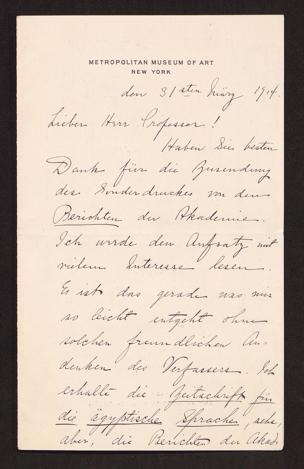 METROPOLITAN MUSEUM OF ART
NEW YORK
den 31sten März 1914.
Lieber Herr Professor!
Haben Sie besten
Dank für die Zusendung
des Sonderdruckes von den
Berichten der Akademie.
Ich werde den Aufsatz mit
vielem Interesse lesen.
Es ist das gerade was mir
so leicht entgeht ohne
solchen freundlichen An-
denken des Verfassers. Ich
erhalte die Zeitschrift für
die ägyptische Sprache, sehe
aber, die Berichten der Akad-